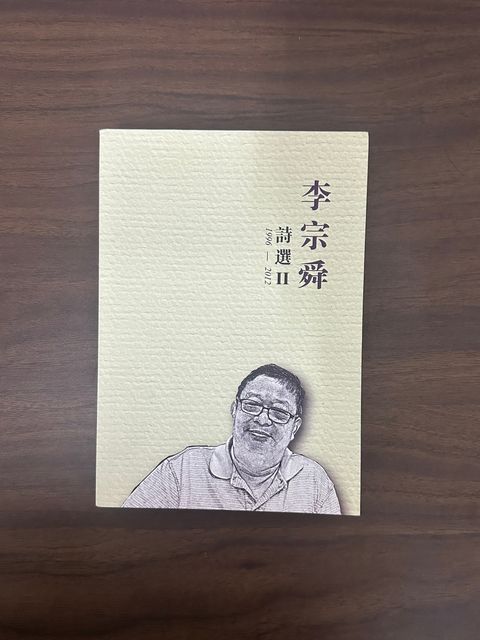 李宗舜
詩選II
1996 — 2012